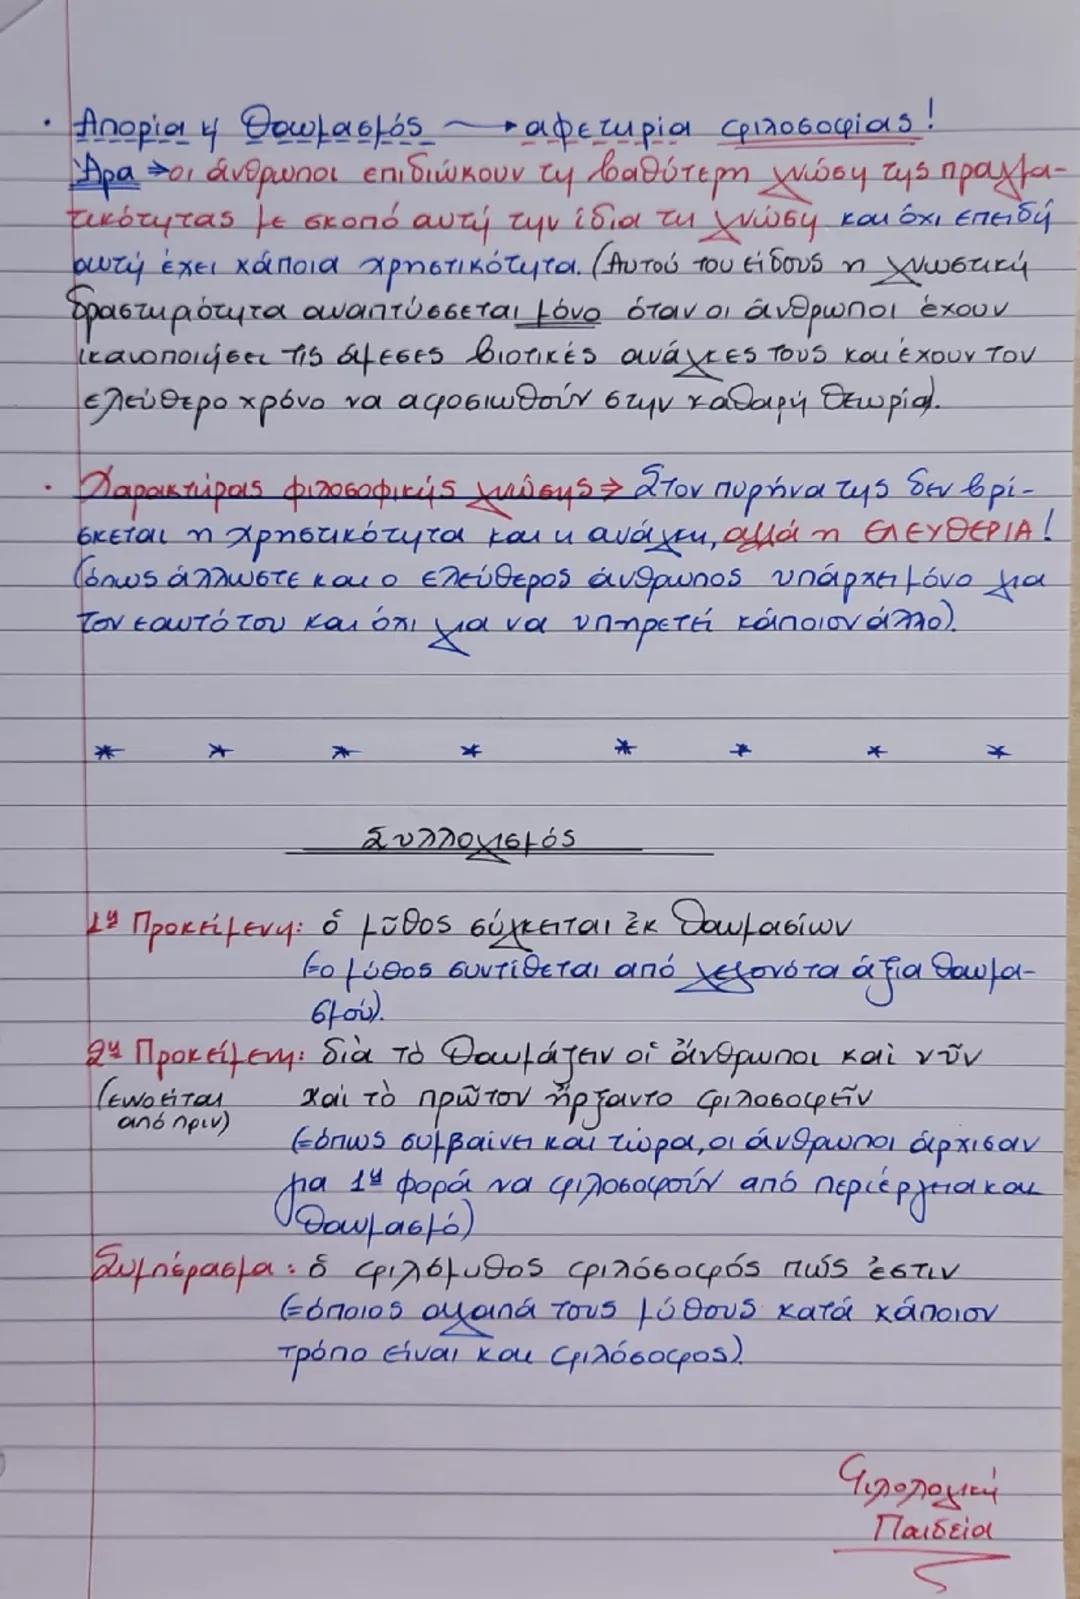 · Απορία ή Θαυμασμός → αφετηρία φιλοσοφίας!
Άρα ⇒ οι άνθρωποι επιδιώκουν τη βαθύτερη γνώση της πραγμα-
τικότητας με σκοπό αυτή την ίδια τη γνώση και όχι επειδή
αυτή έχει κάποια χρηστικότητα. (Αυτού του είδους η γνωστική
δραστηριότητα αναπτύσσεται μόνο όταν οι άνθρωποι έχουν
ικανοποιήσει τις άμεσες βιοτικές ανάγκες τους και έχουν τον
ελεύθερο χρόνο να αφοσιωθούν στην καθαρή θεωρία).
· Χαρακτήρας φιλοσοφικής γνώσης ⇒ Στον πυρήνα της δεν βρί-
σκεται η χρηστικότητα και η ανάγκη, αλλά η ΕΛΕΥΘΕΡΙΑ!
(όπως άλλωστε και ο ελεύθερος άνθρωπος υπάρχει μόνο για
τον εαυτό του και όχι για να υπηρετεί κάποιον άλλο).
* * * * * * * *
Συλλογισμός
1η Προκείμενη: ὁ μῦθος σύγκειται ἐκ θαυμασίων
(=ο μύθος συντίθεται από γεγονότα άξια θαυμα-
σμού).
2η Προκείμενη: διὰ τὸ θαυμάζειν οἱ ἄνθρωποι καὶ νῦν
(εννοείται καὶ τὸ πρῶτον ἤρξαντο φιλοσοφεῖν
από πριν)
(=όπως συμβαίνει και τώρα, οι άνθρωποι άρχισαν
για 1η φορά να φιλοσοφούν από περιέργεια και
θαυμασμό)
Συμπέρασμα: ὁ φιλόμυθος φιλόσοφός πώς ἐστιν
(=όποιος αγαπά τους μύθους κατά κάποιον
τρόπο είναι και φιλόσοφος).
Φιλολογική
Παιδεία